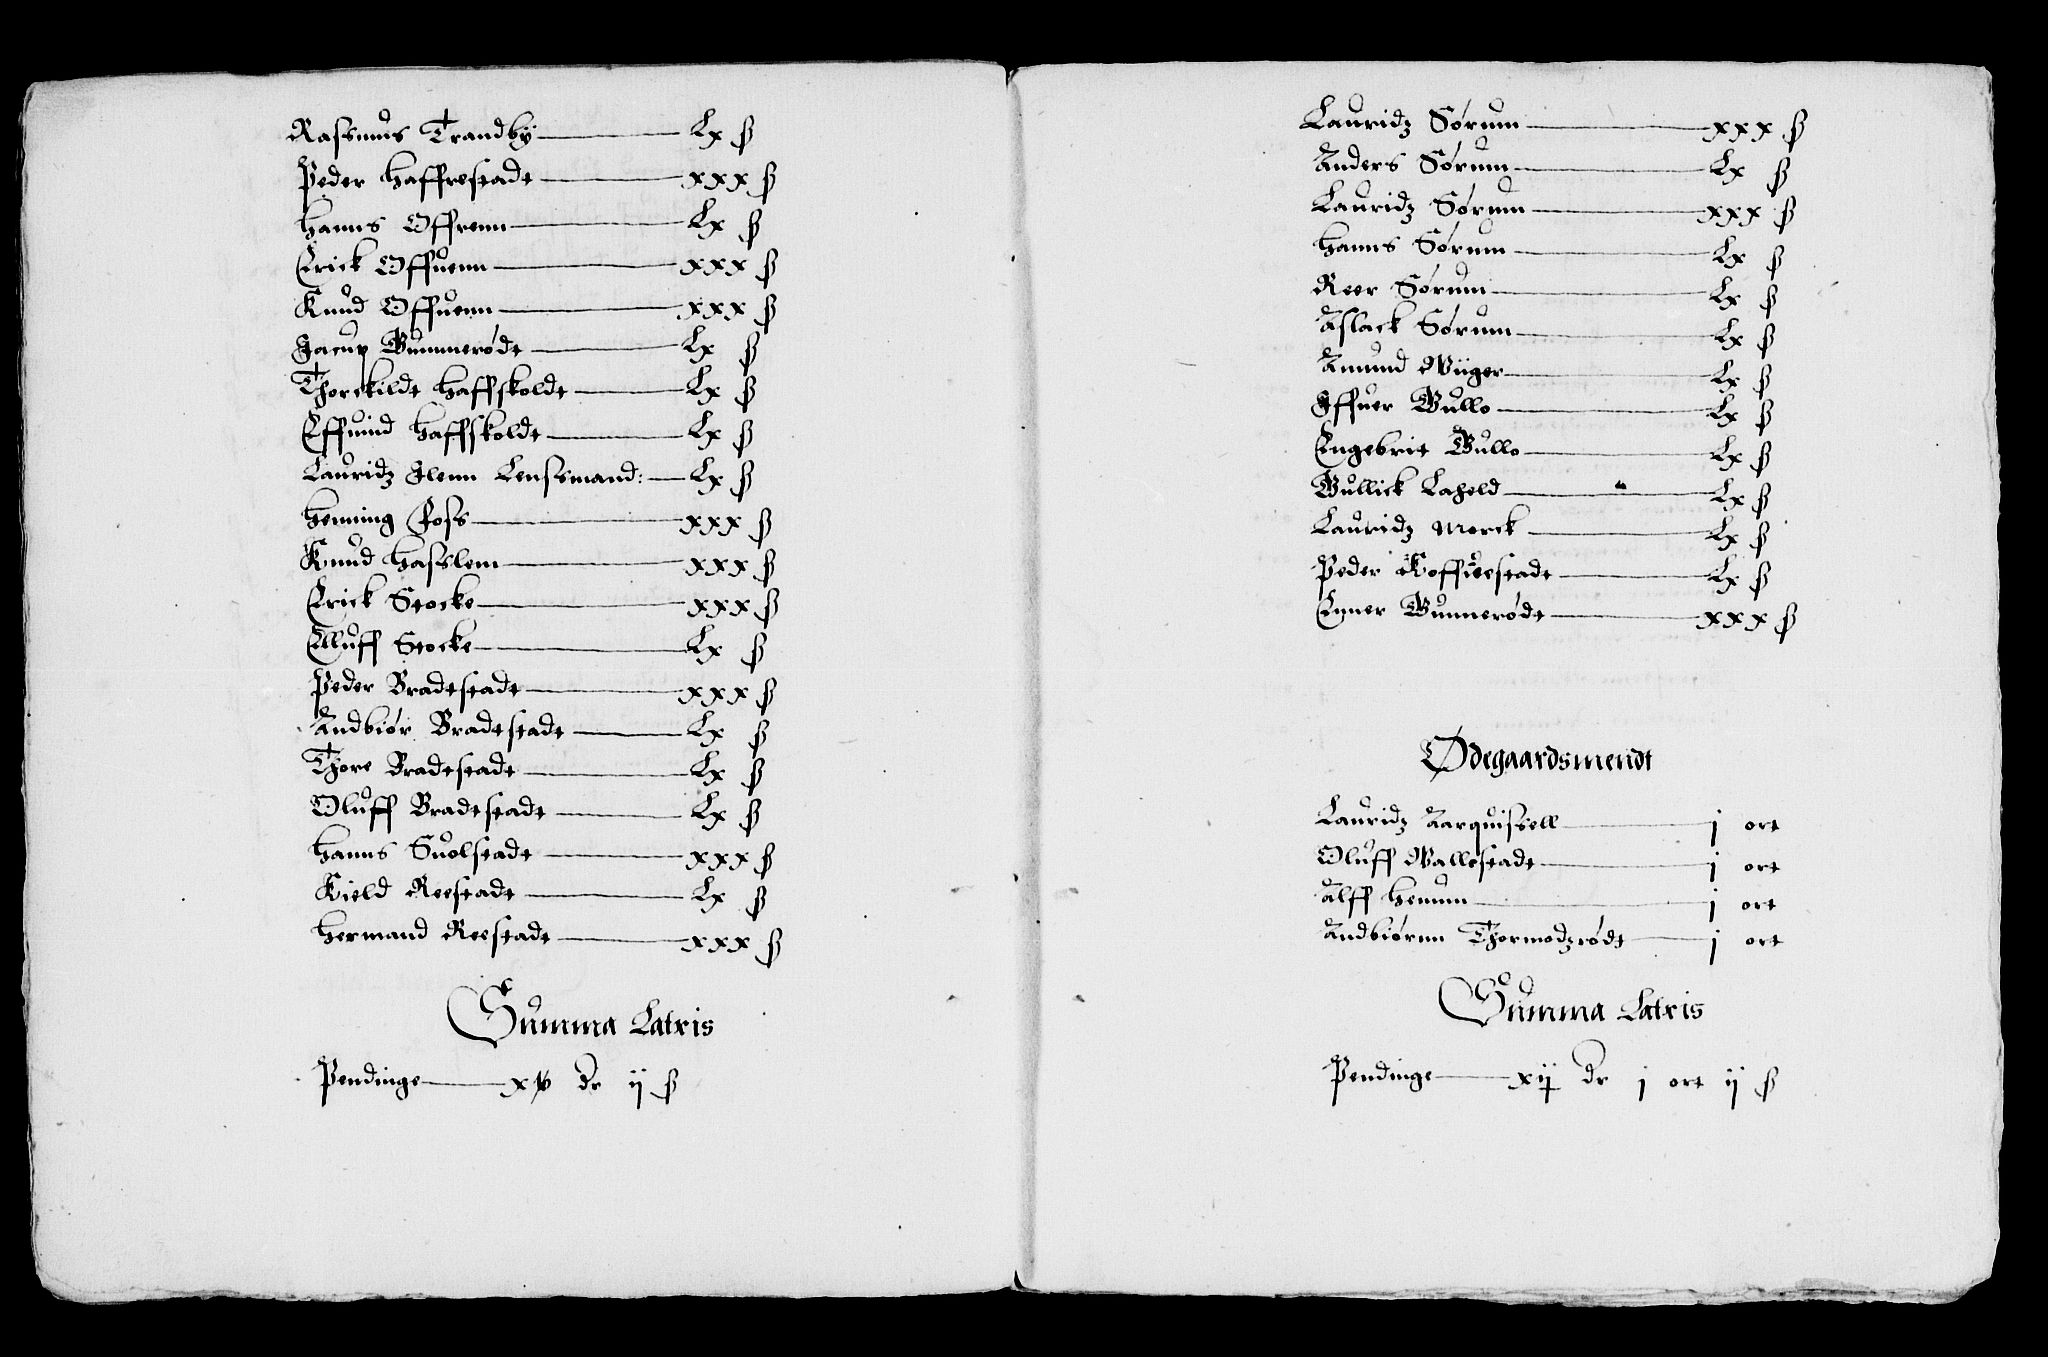 Rassmus Trandby — Lx ß
Peder Haffrestadt — xxx ß
Hanns Offrenn — Lx ß
Erick Offuenn — xxx ß
Knud Offuenn — xxx ß
Jacup Gunnerødt — Lx ß
Thorckildt Haffskoldt — Lx ß
Effuind Haffskoldt — Lx ß
Lauridz Ilenn Lenssmand: — Lx ß
Heming Foss — xxx ß
Knud Hasslem — xxx ß
Erick Stocke — xxx ß
Olluff Stocke — Lx ß
Peder Bradestadt — xxx ß
Andbiør Bradestadt — Lx ß
Thore Bradestadt — Lx ß
Oluff Bradestadt — Lx ß
Hanns Suolstadt — xxx ß
Kield Reestadt — Lx ß
Hermand Reestadt — xxx ß
Summa Latris
Pendinge — xv dr ij ß
Lauridz Sørum — xxx ß
Anders Sørum — Lx ß
Lauridz Sørum — xxx ß
Hanns Sørum — Lx ß
Reer Sørum — Lx ß
Aslack Sørum — Lx ß
Amund Wiiger — Lx ß
Iffuer Gullo — Lx ß
Engebrit Gullo — Lx ß
Gullick Laheld — Lx ß
Lauridz Morck — Lx ß
Peder Koffuestadt — Lx ß
Enner Gunnerødt — xxx ß
Ødegaardsmendt
Lauridz Aarquissell — j ort
Oluff Wallestadt — j ort
Alff Henum — j ort
Andbiørnn Thormodzrødt — j ort
Summa Latris
Pendinge — xij dr j ort ij ß